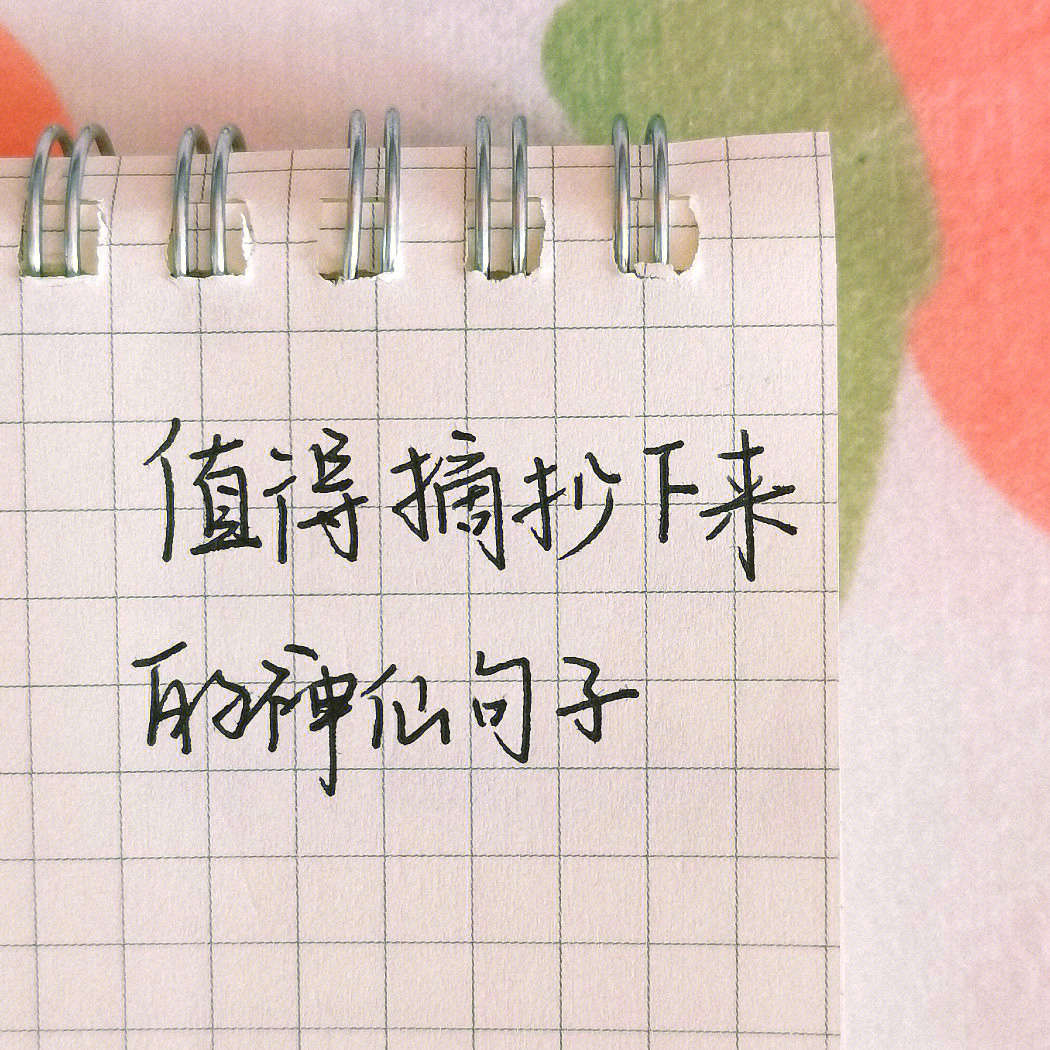 值得摘抄下来
的神仙句子